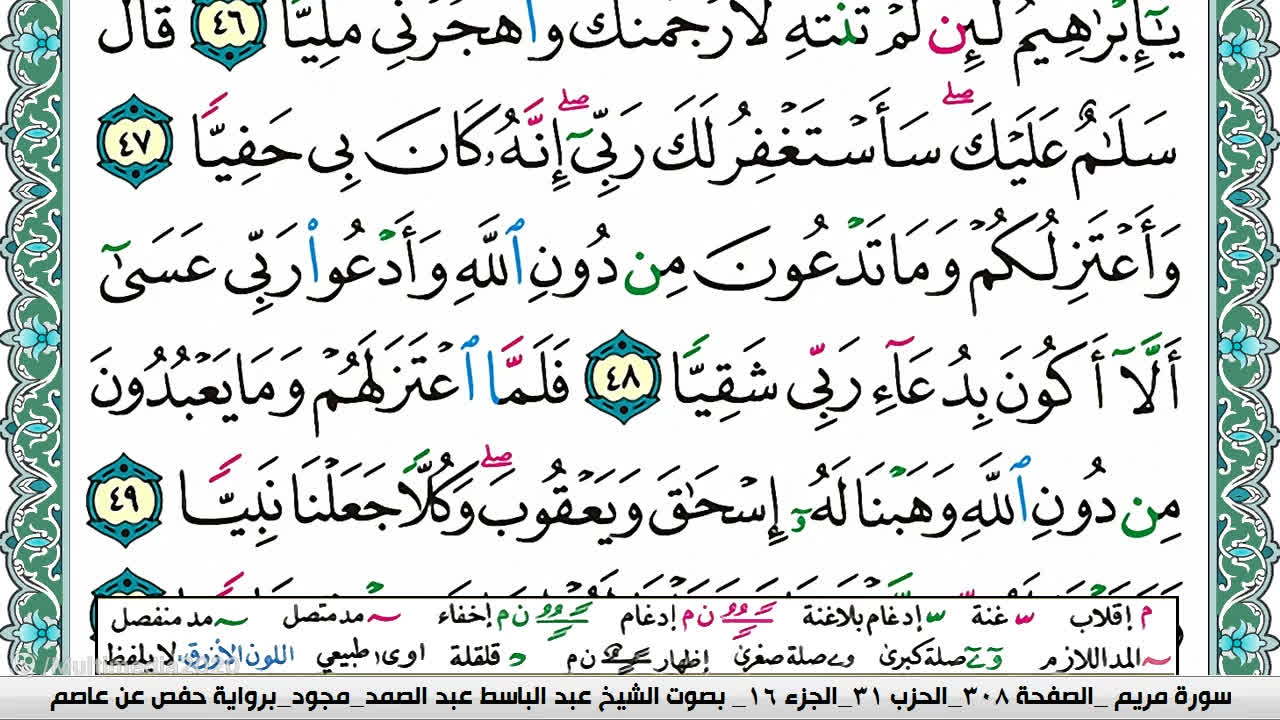 يَـٰٓإِبْرَٰهِيمُ لَئِن لَّمْ تَنتَهِ لَأَرْجُمَنَّكَ وَٱهْجُرْنِى مَلِيًّا ٤٦ قَالَ
سَلَـٰمٌ عَلَيْكَ ۖ سَأَسْتَغْفِرُ لَكَ رَبِّىٓ ۖ إِنَّهُۥ كَانَ بِى حَفِيًّا ٤٧
وَأَعْتَزِلُكُمْ وَمَا تَدْعُونَ مِن دُونِ ٱللَّهِ وَأَدْعُوا۟ رَبِّى عَسَىٰٓ
أَلَّآ أَكُونَ بِدُعَآءِ رَبِّى شَقِيًّا ٤٨ فَلَمَّا ٱعْتَزَلَهُمْ وَمَا يَعْبُدُونَ
مِن دُونِ ٱللَّهِ وَهَبْنَا لَهُۥٓ إِسْحَـٰقَ وَيَعْقُوبَ ۖ وَكُلًّا جَعَلْنَا نَبِيًّا ٤٩
م إقلاب غنة إدغام بلاغنة ن م إدغام ن م إخفاء مد متصل مد منفصل
المد اللازم صلة كبرى و ے صلة صغرى إظهار ن م قلقلة د اوى١ طبيعي اللون الأزرق لا يلفظ
Multimedia2020
سورة مريم _الصفحة ٣٠٨_الحزب ٣١_الجزء ١٦_ بصوت الشيخ عبد الباسط عبد الصمد_مجود_برواية حفص عن عاصم